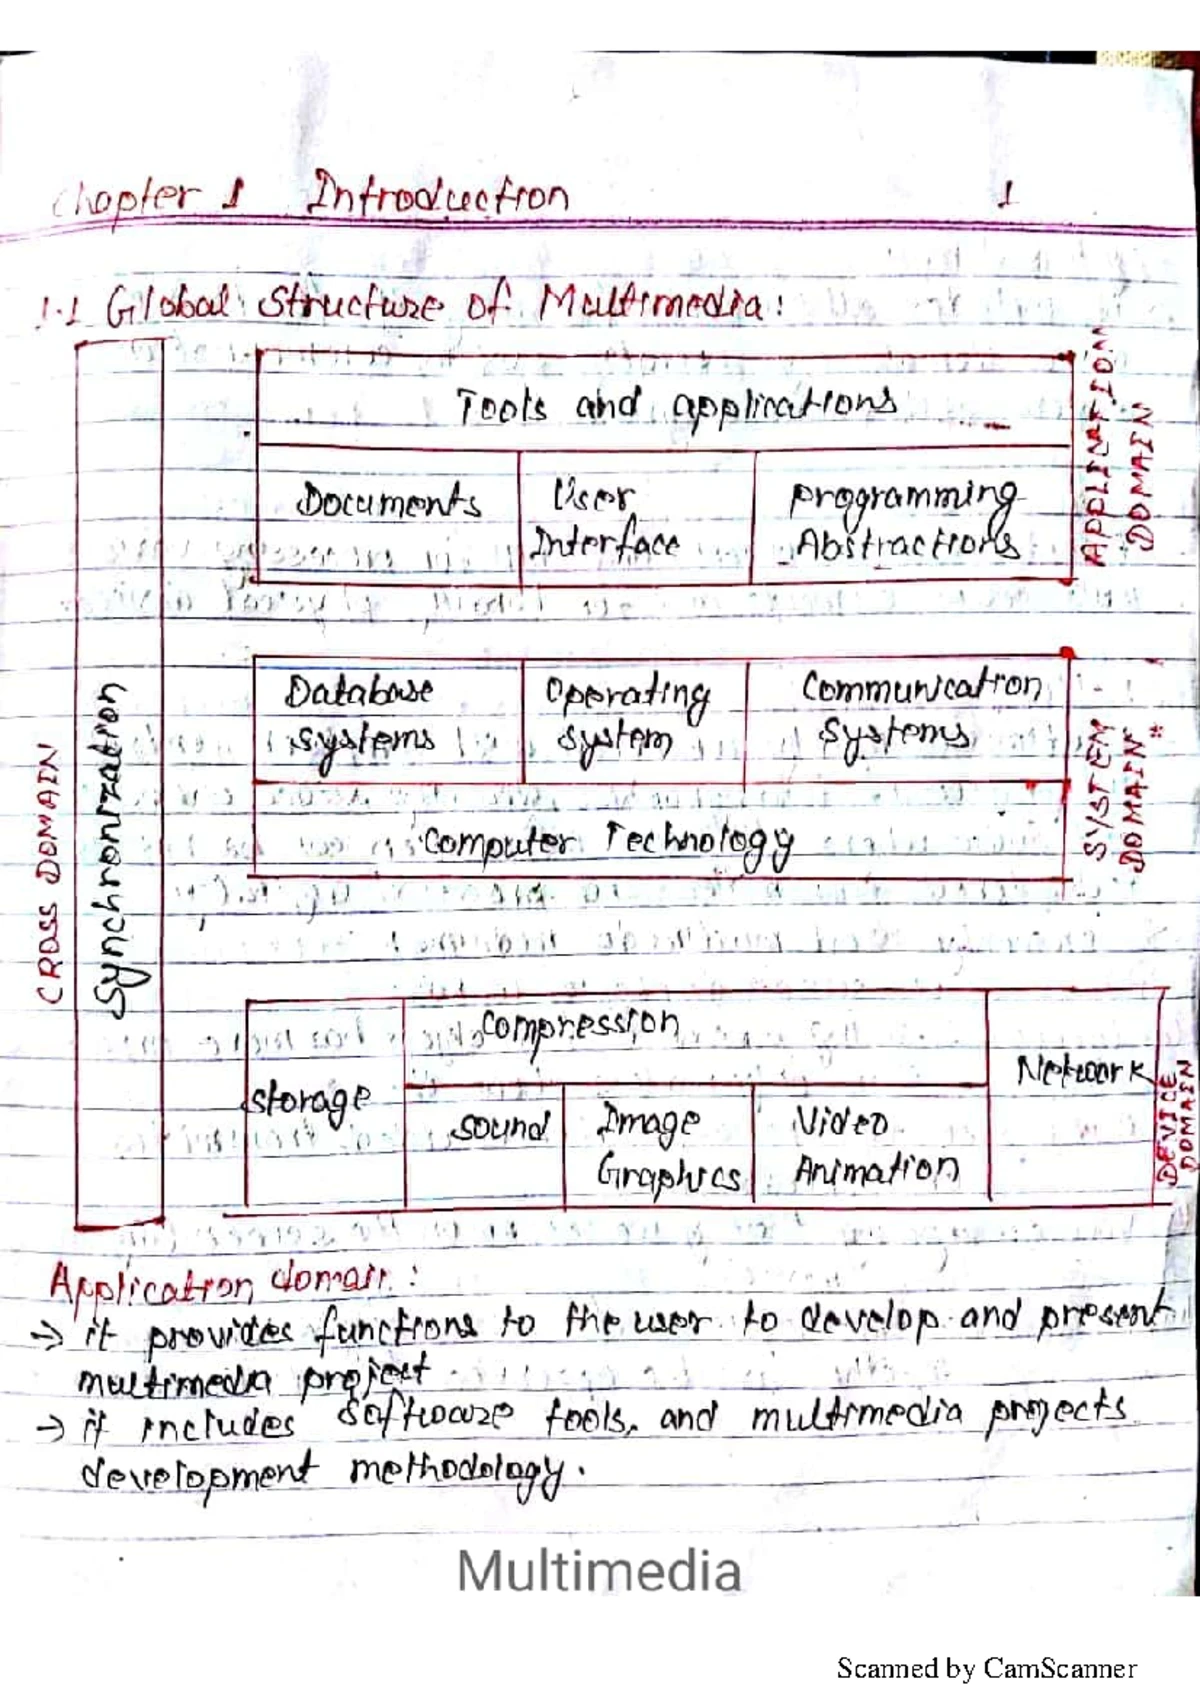 Chapter 1 Introduction 1
1.1 Global Structure of Multimedia:
Tools and applications
Documents
User
Interface
programming
Abstractions
APPLICATION
DOMAIN
Database
systems
Operating
system
Communication
systems
Computer Technology
SYSTEM
DOMAIN *
CROSS DOMAIN
Synchronization
storage
compression
sound
Image
Graphics
Video
Animation
Network
DEVICE
DOMAIN
Application domain:
→ it provides functions to the user to develop and present
multimedia project
→ it includes software tools, and multimedia projects
development methodology.
Multimedia
Scanned by CamScanner